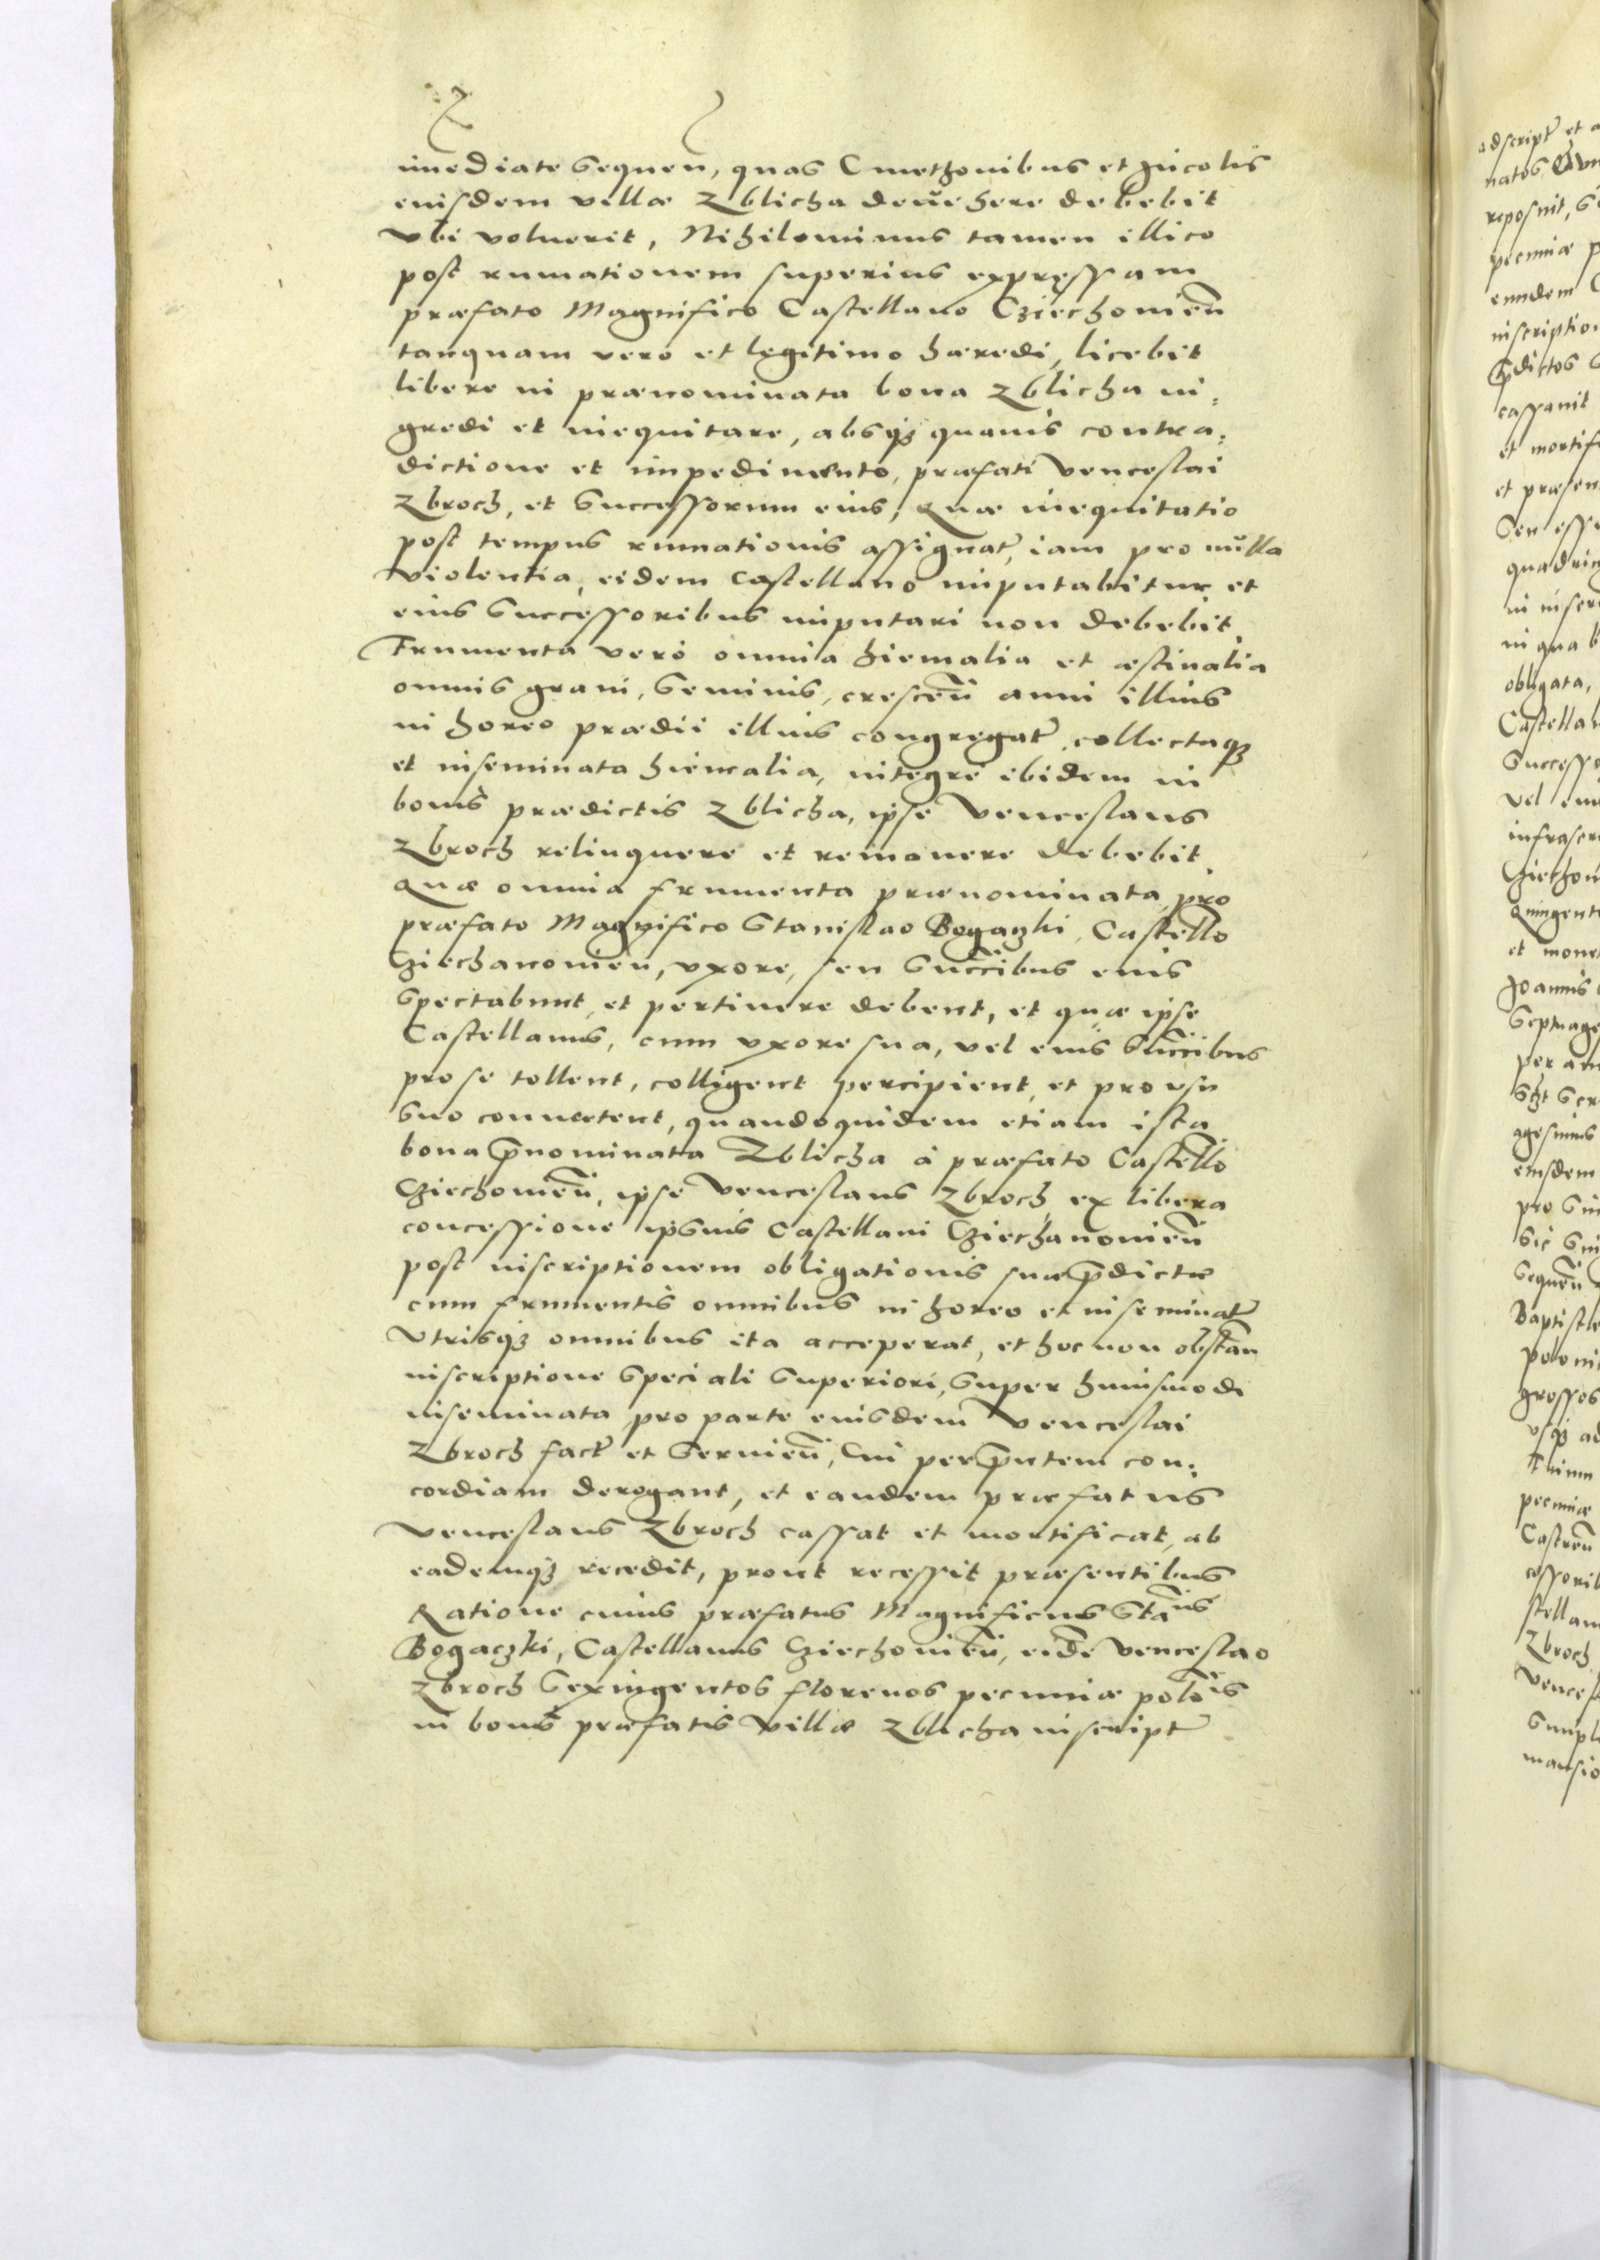 imediate sequen, quas Cmethonibus et Incolis
eiusdem villæ Zblicha deuehere debebit
vbi voluerit, Nihilominus tamen illico
post rumationem superius expressam
præfato Magnifico Castellano Cziechonien
tanquam vero et legitimo hæredi, licebit
libere in prænominata bona Zblicha in:
gredi et inequitare, absqz quauis contra:
dictione et impedimento, præfati Venceslai
Zbroch, et Successorum eius, Quæ inequitatio
post tempus rumationis assignat, iam pro nulla
violentia, eidem Castellano imputabitur et
eius Successoribus imputari non debebit.
Frumenta vero omnia hiemalia et æstiualia
omnis grani, Seminis, crescen anni illius
in horeo prædii illius congregat, collectaqz
et inseminata hiemalia, integre ibidem in
bonis prædictis Zblicha, ipse Venceslaus
Zbroch relinquere et remanere debebit.
Quæ omnia frumenta prænominata, pro
præfato Magnifico Stanislao Bogaczki, Castello
Cziechanouien, vxore, seu Succibus eius
Spectabunt, et pertinere debent, et quæ ipse
Castellanus, cum vxore sua, vel eius Succibus
pro se tollent, colligent percipient, et pro vsu
suo conuertent, quandoquidem etiam ista
bona pnominata Zblicha à præfato Castello
Cziechonien, ipse Venceslaus Zbroch, ex libera
concessione ipsius Castellani Cziechanouien
post inscriptionem obligationis suæ pdictæ
cum frumentis omnibus in horeo et inseminat
vtrisqz omnibus ita acceperat, et hoc non obstan
inscriptione Speciali Superiori, Super huiusmodi
inseminata pro parte eiusdem Venceslai
Zbroch fact et Seruien, Cui per pntem con:
cordiam derogant, et eandem præfatus
Venceslaus Zbroch cassat et mortificat, ab
eademqz recedit, prout recessit præsentibus
Ratione cuius præfatus Magnificus Staus
Bogaczki, Castellanus Cziechonien, eide Venceslao
Zbroch Sexingentos florenos pecuniæ polois
in bonis præfatis villæ Zblicha inscript